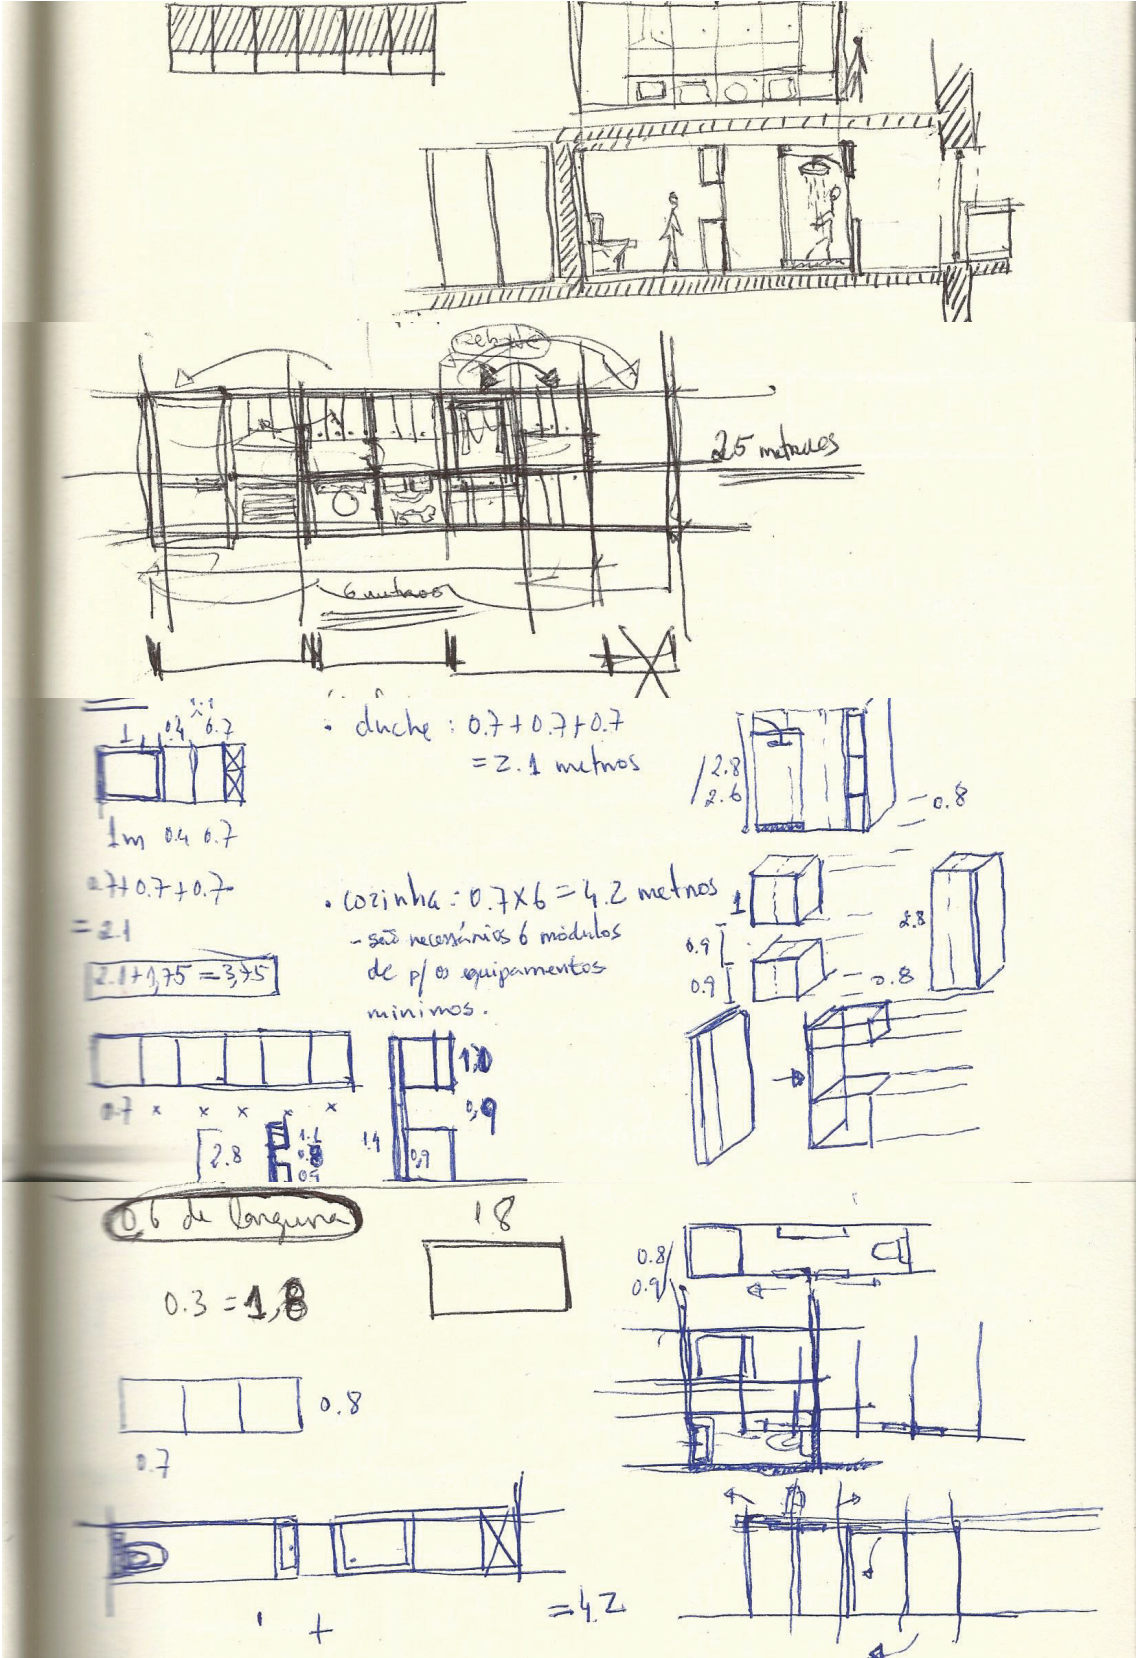 25 metros
6 metros
1 0.4 0.7
1m 0.4 0.7
0.7+0.7+0.7
= 2.1
2.1+1,75 = 3,75
• duche : 0.7+0.7+0.7
= 2.1 metros
2.8
2.6
0.8
• cozinha : 0.7x6 = 4.2 metros
- são necessários 6 módulos
de p/ os equipamentos
mínimos.
1
0.9
0.9
0.8
2.8
0.7 x x x x x
2.8
1.1
0.8
0.9
1,0
0,9
1.9
0,9
0,6 de largura
1 8
0.3 = 1,8
0.8
0.7
0.8
0.9
+
= 4.2